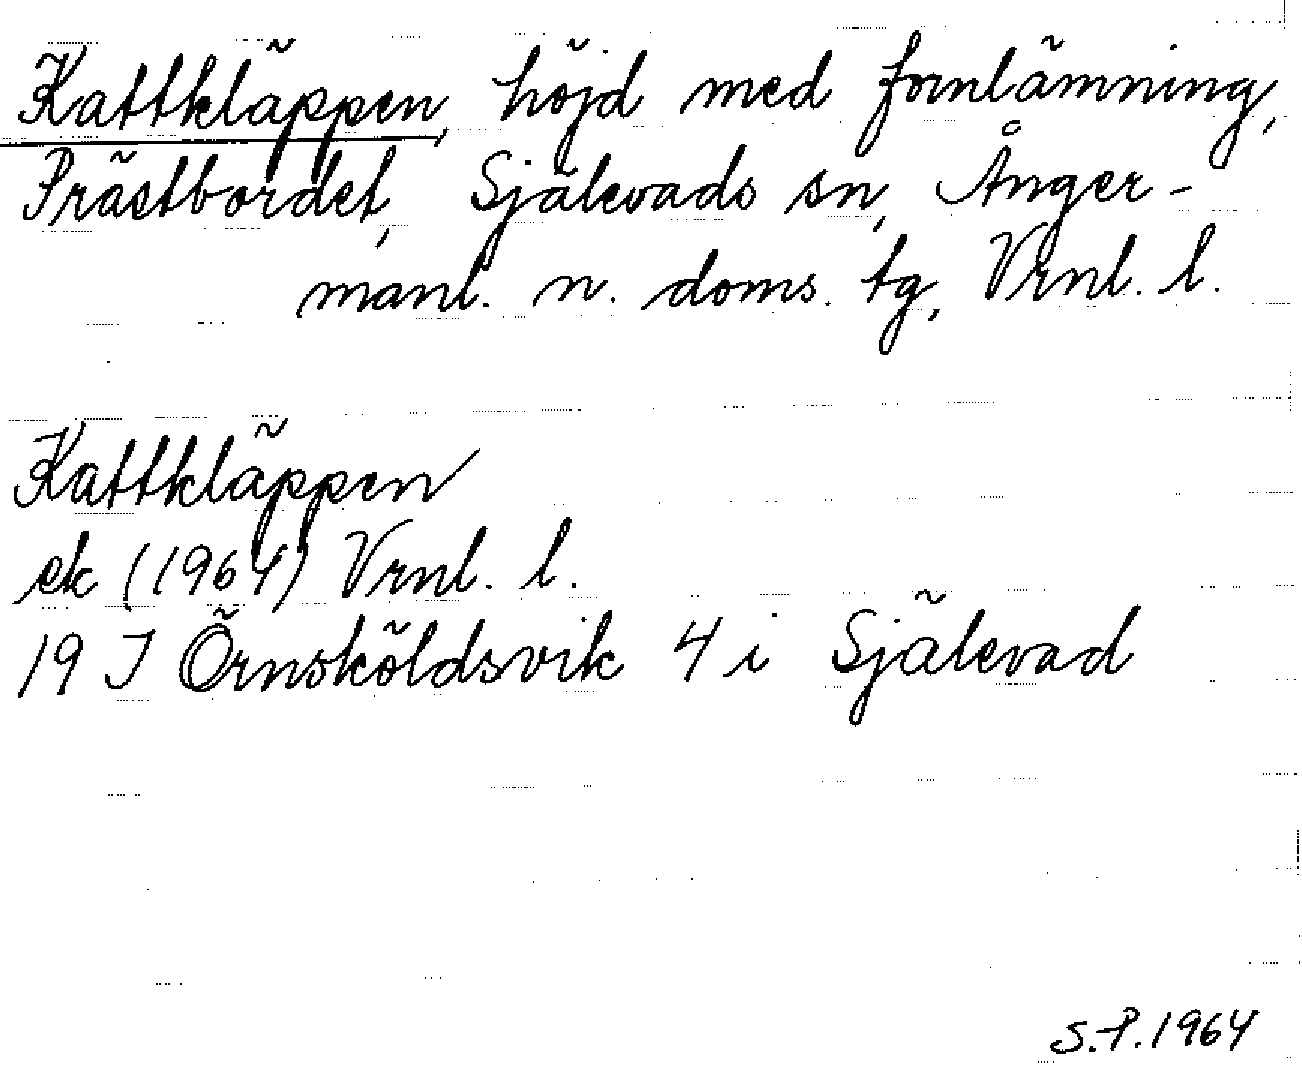 Kattkläppen, höjd med fornlämning,
Prästbordet, Själevads sn, Ånger-
manl. n. doms. tg, Vrnl. l.
Kattkläppen
ek (1964) Vrnl. l.
19 I Örnsköldsvik 4 i Själevad
S.P. 1964